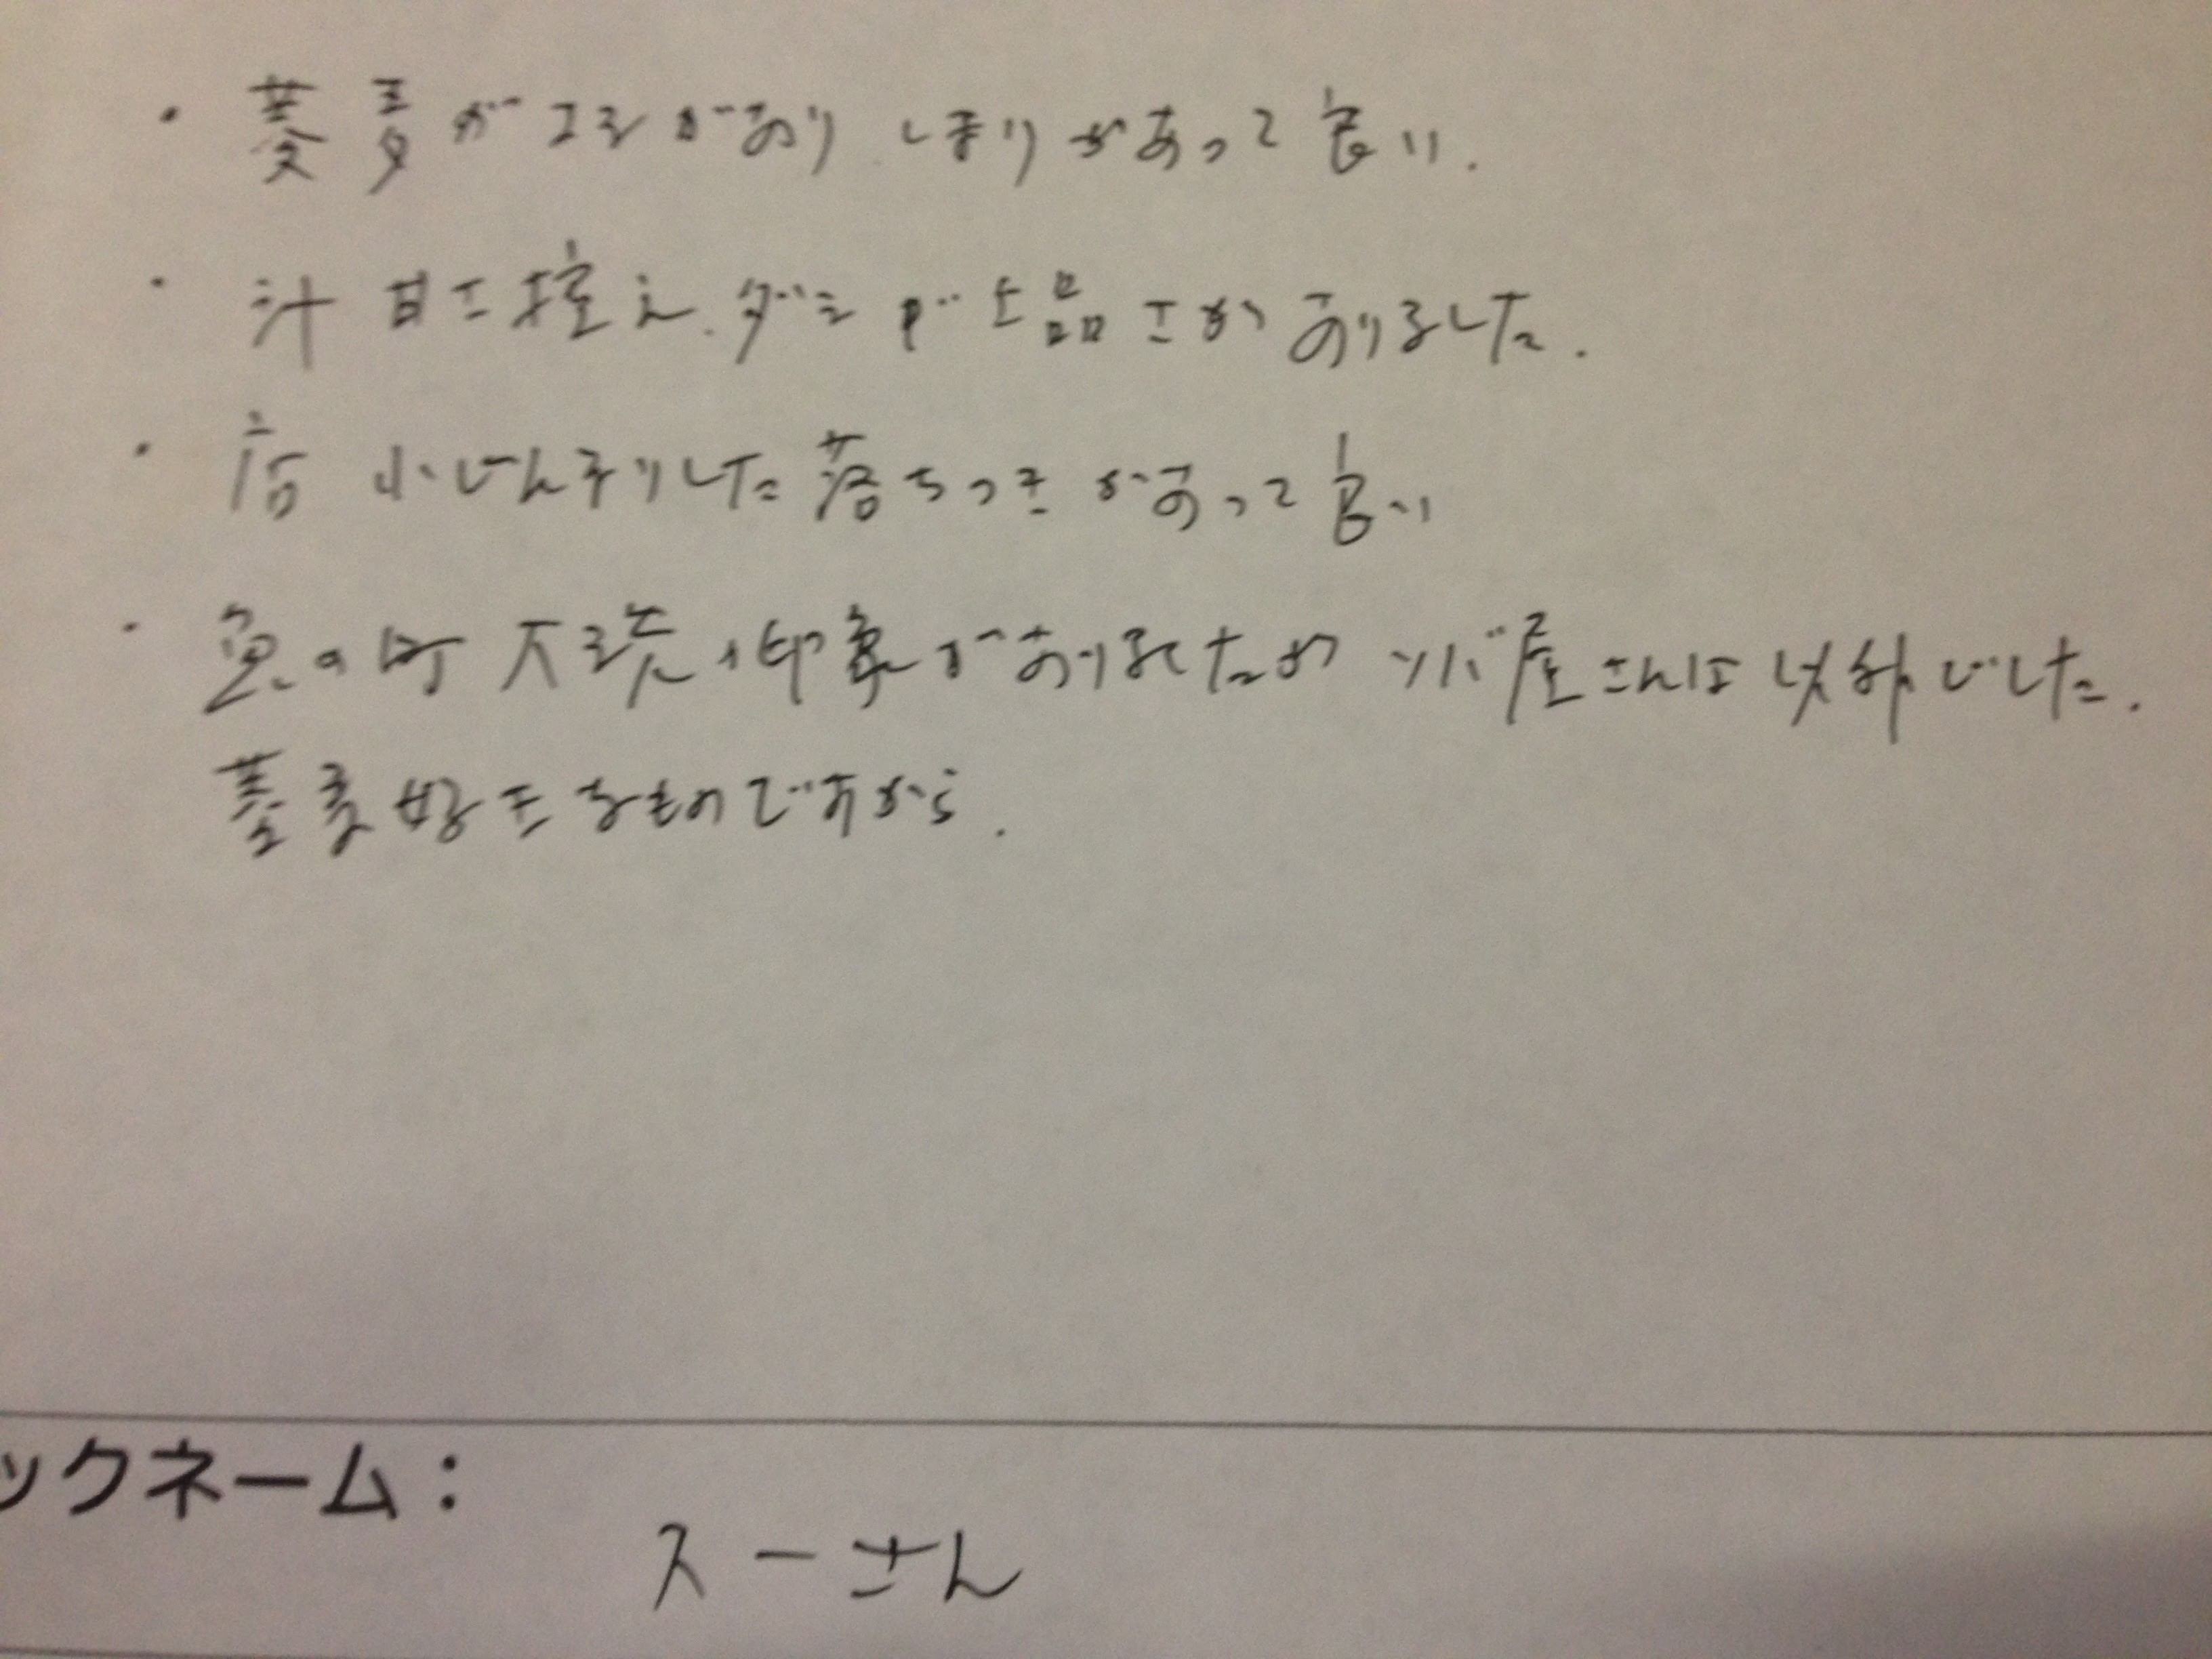 ・蕎麦がコシがあり しまりがあって良い.
・汁 甘さ控え.ダシが上品さがありました.
・店 小じんまりした落ちつきがあって良い
・魚の町 大洗の印象がありましたが ソバ屋さんは以外でした.
蕎麦好きなものですから.
ックネーム：
スーさん